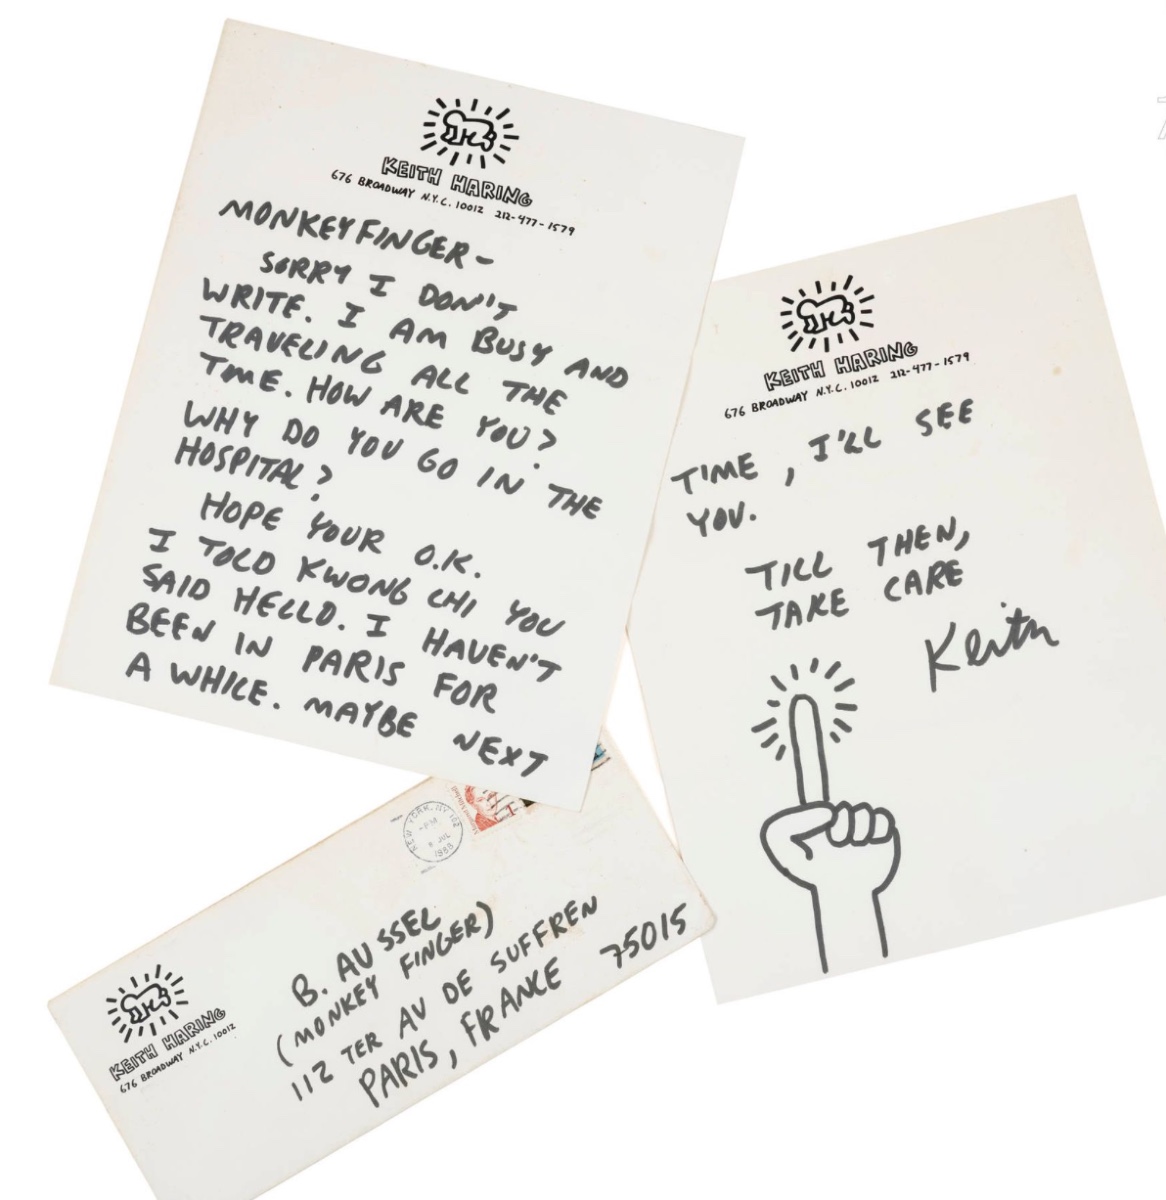 KEITH HARING
676 BROADWAY N.Y.C. 10012 212-477-1579
MONKEYFINGER-
SORRY I DON'T
WRITE. I AM BUSY AND
TRAVELING ALL THE
TIME. HOW ARE YOU?
WHY DO YOU GO IN THE
HOSPITAL?
HOPE YOUR O.K.
I TOLD KWONG CHI YOU
SAID HELLO. I HAVEN'T
BEEN IN PARIS FOR
A WHILE. MAYBE NEXT
KEITH HARING
676 BROADWAY N.Y.C. 10012 212-477-1579
TIME, I'LL SEE
YOU.
TILL THEN,
TAKE CARE
Keith
NEW YORK, NY
PM
JUL
1988
Margaret Mitchell
KEITH HARING
676 BROADWAY N.Y.C. 10012
B. AUSSEL
(MONKEY FINGER)
112 TER AV DE SUFFREN
PARIS, FRANCE 75015